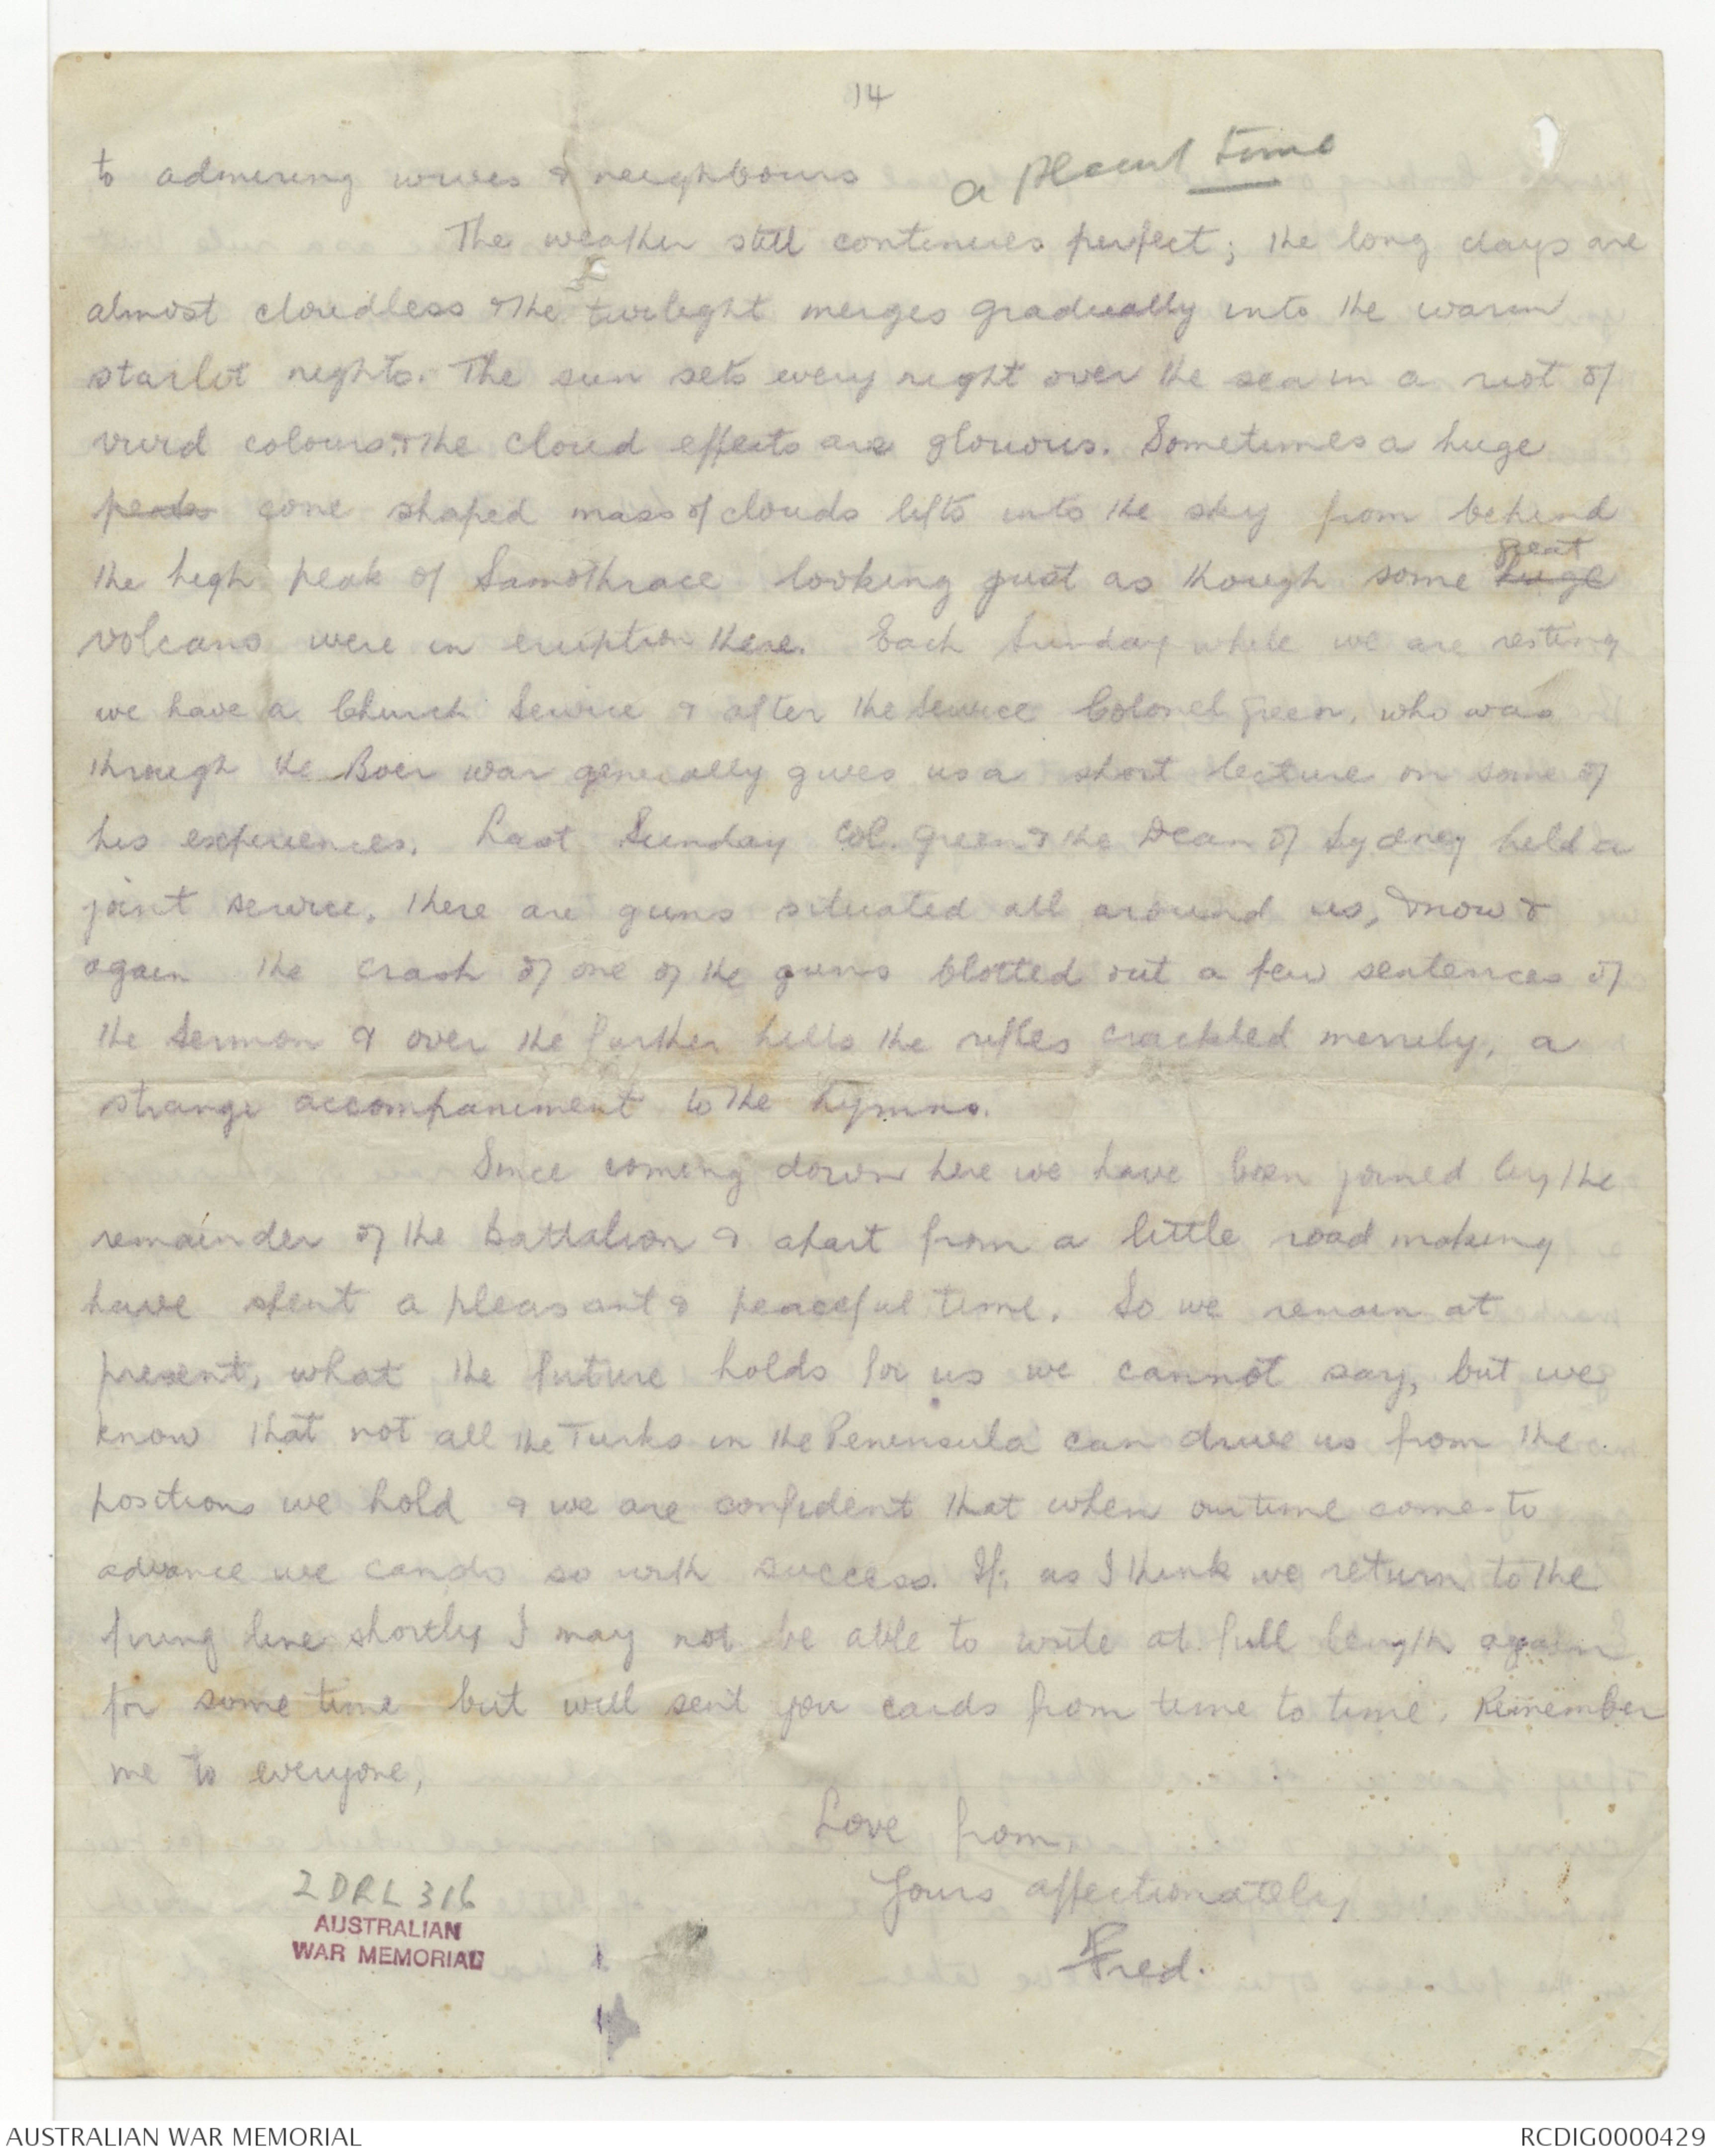 14
to admiring wives & neighbours a time
The weather still continues perfect; the long days are
almost cloudless & the twilight merges gradually into the warm
starlit nights. The sun sets every night over the sea in a riot of
vivid colours, & the cloud effects are glorious. Sometimes a huge
peaks cone shaped mass of clouds lifts into the sky from behind
great
the high peak of Samothrace looking just as though some huge
volcano were in eruption there. Each Sunday while we are resting
we have a Church Service & after the service Colonel Green, who was
through the Boer war generally gives us a short lecture on some of
his experiences. Last Sunday Col. Green & the Dean of Sydney held a
joint service, there are guns situated all around us, & now &
again the crash of one of the guns blotted out a few sentences of
the sermon & over the further hills the rifles crackled merrily, a
strange accompaniment to the hymns.
Since coming down here we have been joined by the
remainder of the Battalion & apart from a little road making
have spent a pleasant & peaceful time. So we remain at
present, what the future holds for us we cannot say, but we
know that not all the Turks in the Peninsula can drive us from the
positions we hold & we are confident that when our time come to
advance we can do so with success. If, as I think we return to the
firing line shortly I may not be able to write at full length again
for some time but will sent you cards from time to time. Remember
me to everyone,
Love from
Yours affectionately
Fred.
2 DRL 316
AUSTRALIAN
WAR MEMORIAL
AUSTRALIAN WAR MEMORIAL RCDIG0000429